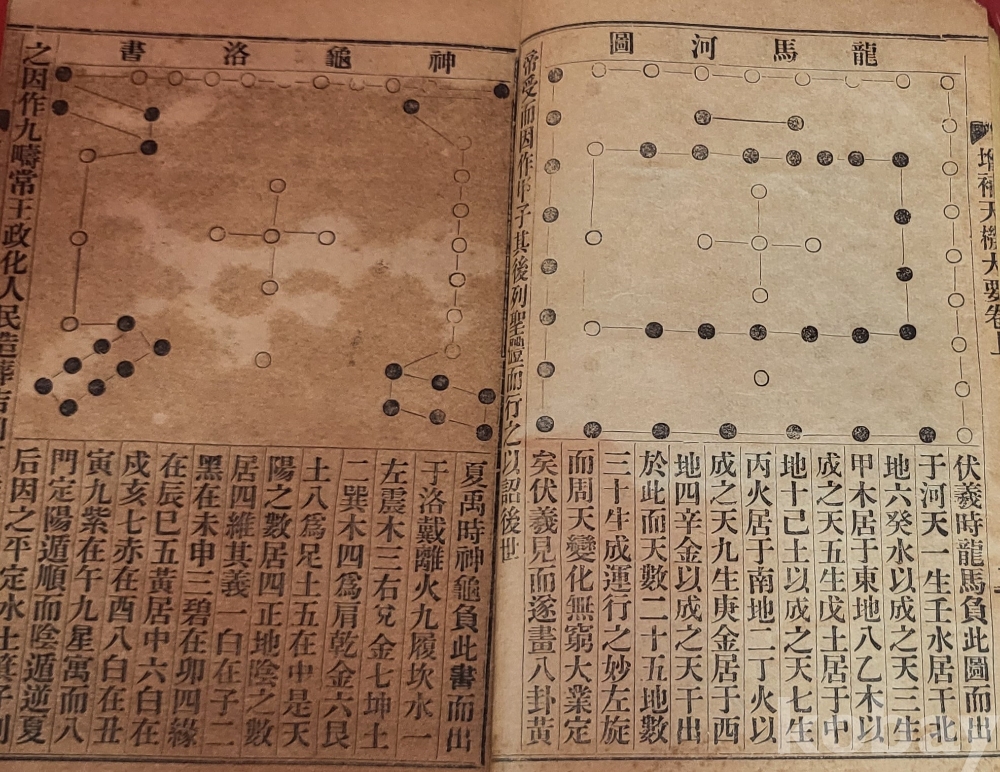 增補天機大要卷上
龍馬河圖
伏羲時龍馬負此圖而出
于河天一生壬水居于北
地六癸水以成之天三生
甲木居于東地八乙木以
成之天五生戊土居于中
地十己土以成之天七生
丙火居于南地二丁火以
成之天九生庚金居于西
地四辛金以成之天干出
於此而天數二十五地數
三十生成運行之妙左旋
而周天變化無窮大業定
矣伏羲見而遂畫八卦黃
帝受而因作甲子其後列聖體而行之以詔後世
神龜洛書
夏禹時神龜負此書而出
于洛戴離火九履坎水一
左震木三右兌金七坤土
二巽木四爲肩乾金六艮
土八爲足土五在中是天
陽之數居四正地陰之數
居四維其義一白在子二
黑在未申三碧在卯四緣
在辰巳五黃居中六白在
戌亥七赤在酉八白在丑
寅九紫在午九星寓而八
門定陽遁順而陰遁逆夏
后因之平定水土箕子則
之因作九疇常王政化人民造葬吉凶